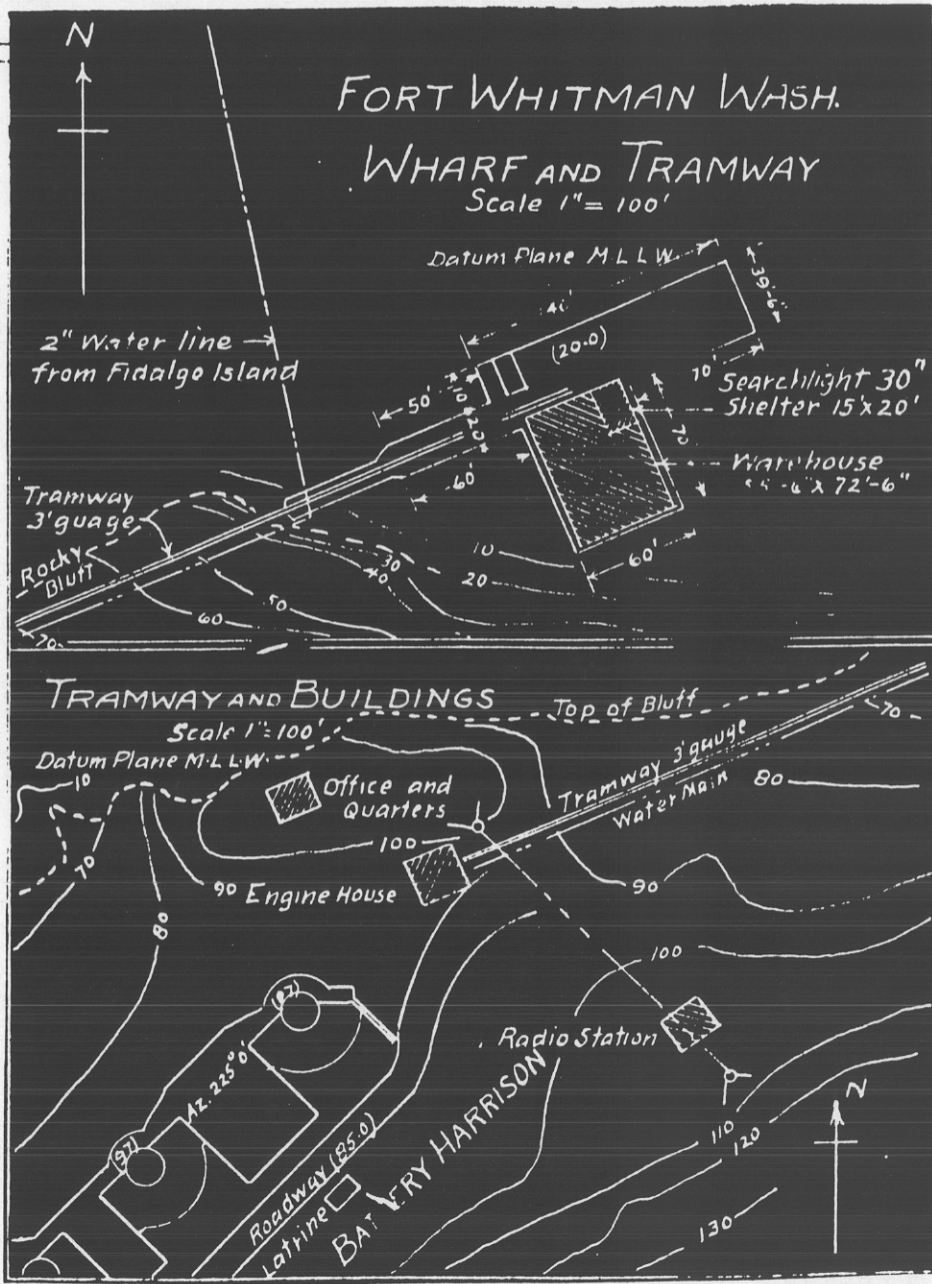 N
FORT WHITMAN WASH.
WHARF AND TRAMWAY
Scale 1" = 100'
Datum Plane M.L.L.W.
39'-6"
(20.0)
2" Water line
from Fidalgo Island
50'
10'
20'
60'
70'
Searchlight 30"
Shelter 15'x20'
70
Warehouse
x 72'-6"
60'
Tramway
3' guage
Rocky
Bluff
10
20
30
40
50
60
70
TRAMWAY AND BUILDINGS
Scale 1" = 100'
Datum Plane M.L.L.W.
Top of Bluff
70
Tramway 3' gauge
Water Main
80
10
Office and
Quarters
100
90
Engine House
70
80
90
100
(97)
Radio Station
Az. 225° 0'
(97)
Roadway (85.0)
Latrine
BATTERY HARRISON
110
120
130
N